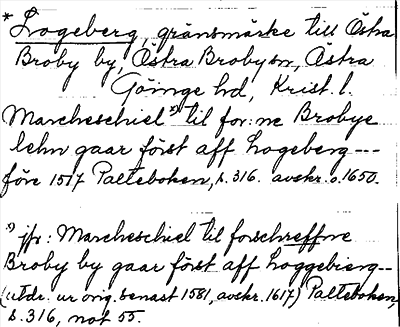 * Logeberg, gränsmärke till Östra
Broby by, Östra Broby sn, Östra
Göinge hd, Krist. l.
Marcheschiel *) til for:ne Brobye
lehn gaar först aff Logeberg ---
före 1517 Palteboken, s. 316. avskr. o. 1650.
*) jfr: Marcheschiel til forschreffne
Broby by gaar först aff Loggebierg --
(utdr. ur orig. senast 1581, avskr. 1617) Palteboken,
s. 316, not 55.